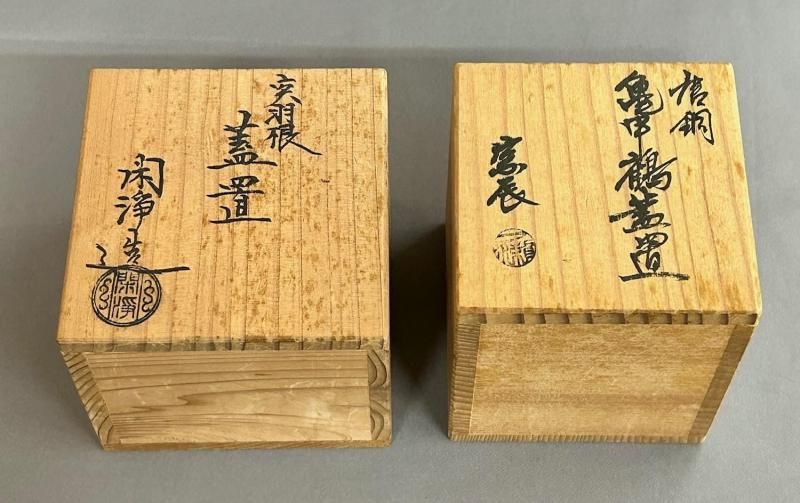 突羽根
蓋置
閑浄造
閑浄
唐銅
亀甲鶴蓋置